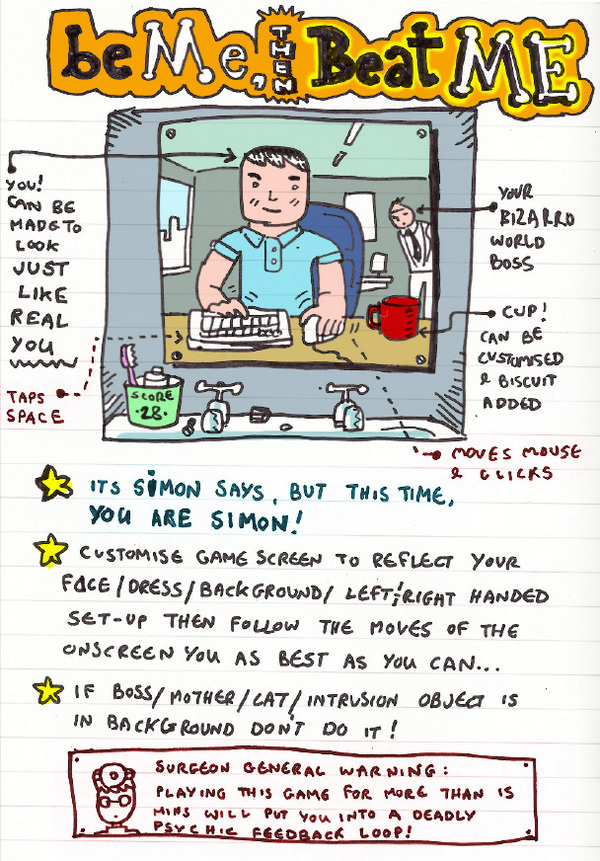 be Me, THEN Beat ME
YOU!
CAN BE
MADE TO
LOOK
JUST
LIKE
REAL
YOU
TAPS
SPACE
SCORE
·28·
YOUR
BIZARRO
WORLD
BOSS
CUP!
CAN BE
CUSTOMISED
& BISCUIT
ADDED
MOVES MOUSE
& CLICKS
ITS SIMON SAYS, BUT THIS TIME,
YOU ARE SIMON!
CUSTOMISE GAME SCREEN TO REFLECT YOUR
FACE/DRESS/BACKGROUND/LEFT/RIGHT HANDED
SET-UP THEN FOLLOW THE MOVES OF THE
ONSCREEN YOU AS BEST AS YOU CAN...
IF BOSS/MOTHER/CAT/INTRUSION OBJECT IS
IN BACKGROUND DON'T DO IT!
SURGEON GENERAL WARNING:
PLAYING THIS GAME FOR MORE THAN 15
MINS WILL PUT YOU INTO A DEADLY
PSYCHIC FEEDBACK LOOP!